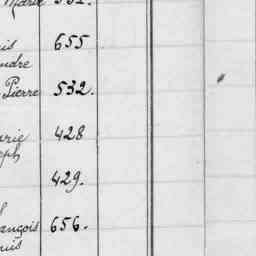 Marie 531.
uis 655
andre
Pierre 532.
arie 428
seph
429.
ançois 656.
uis